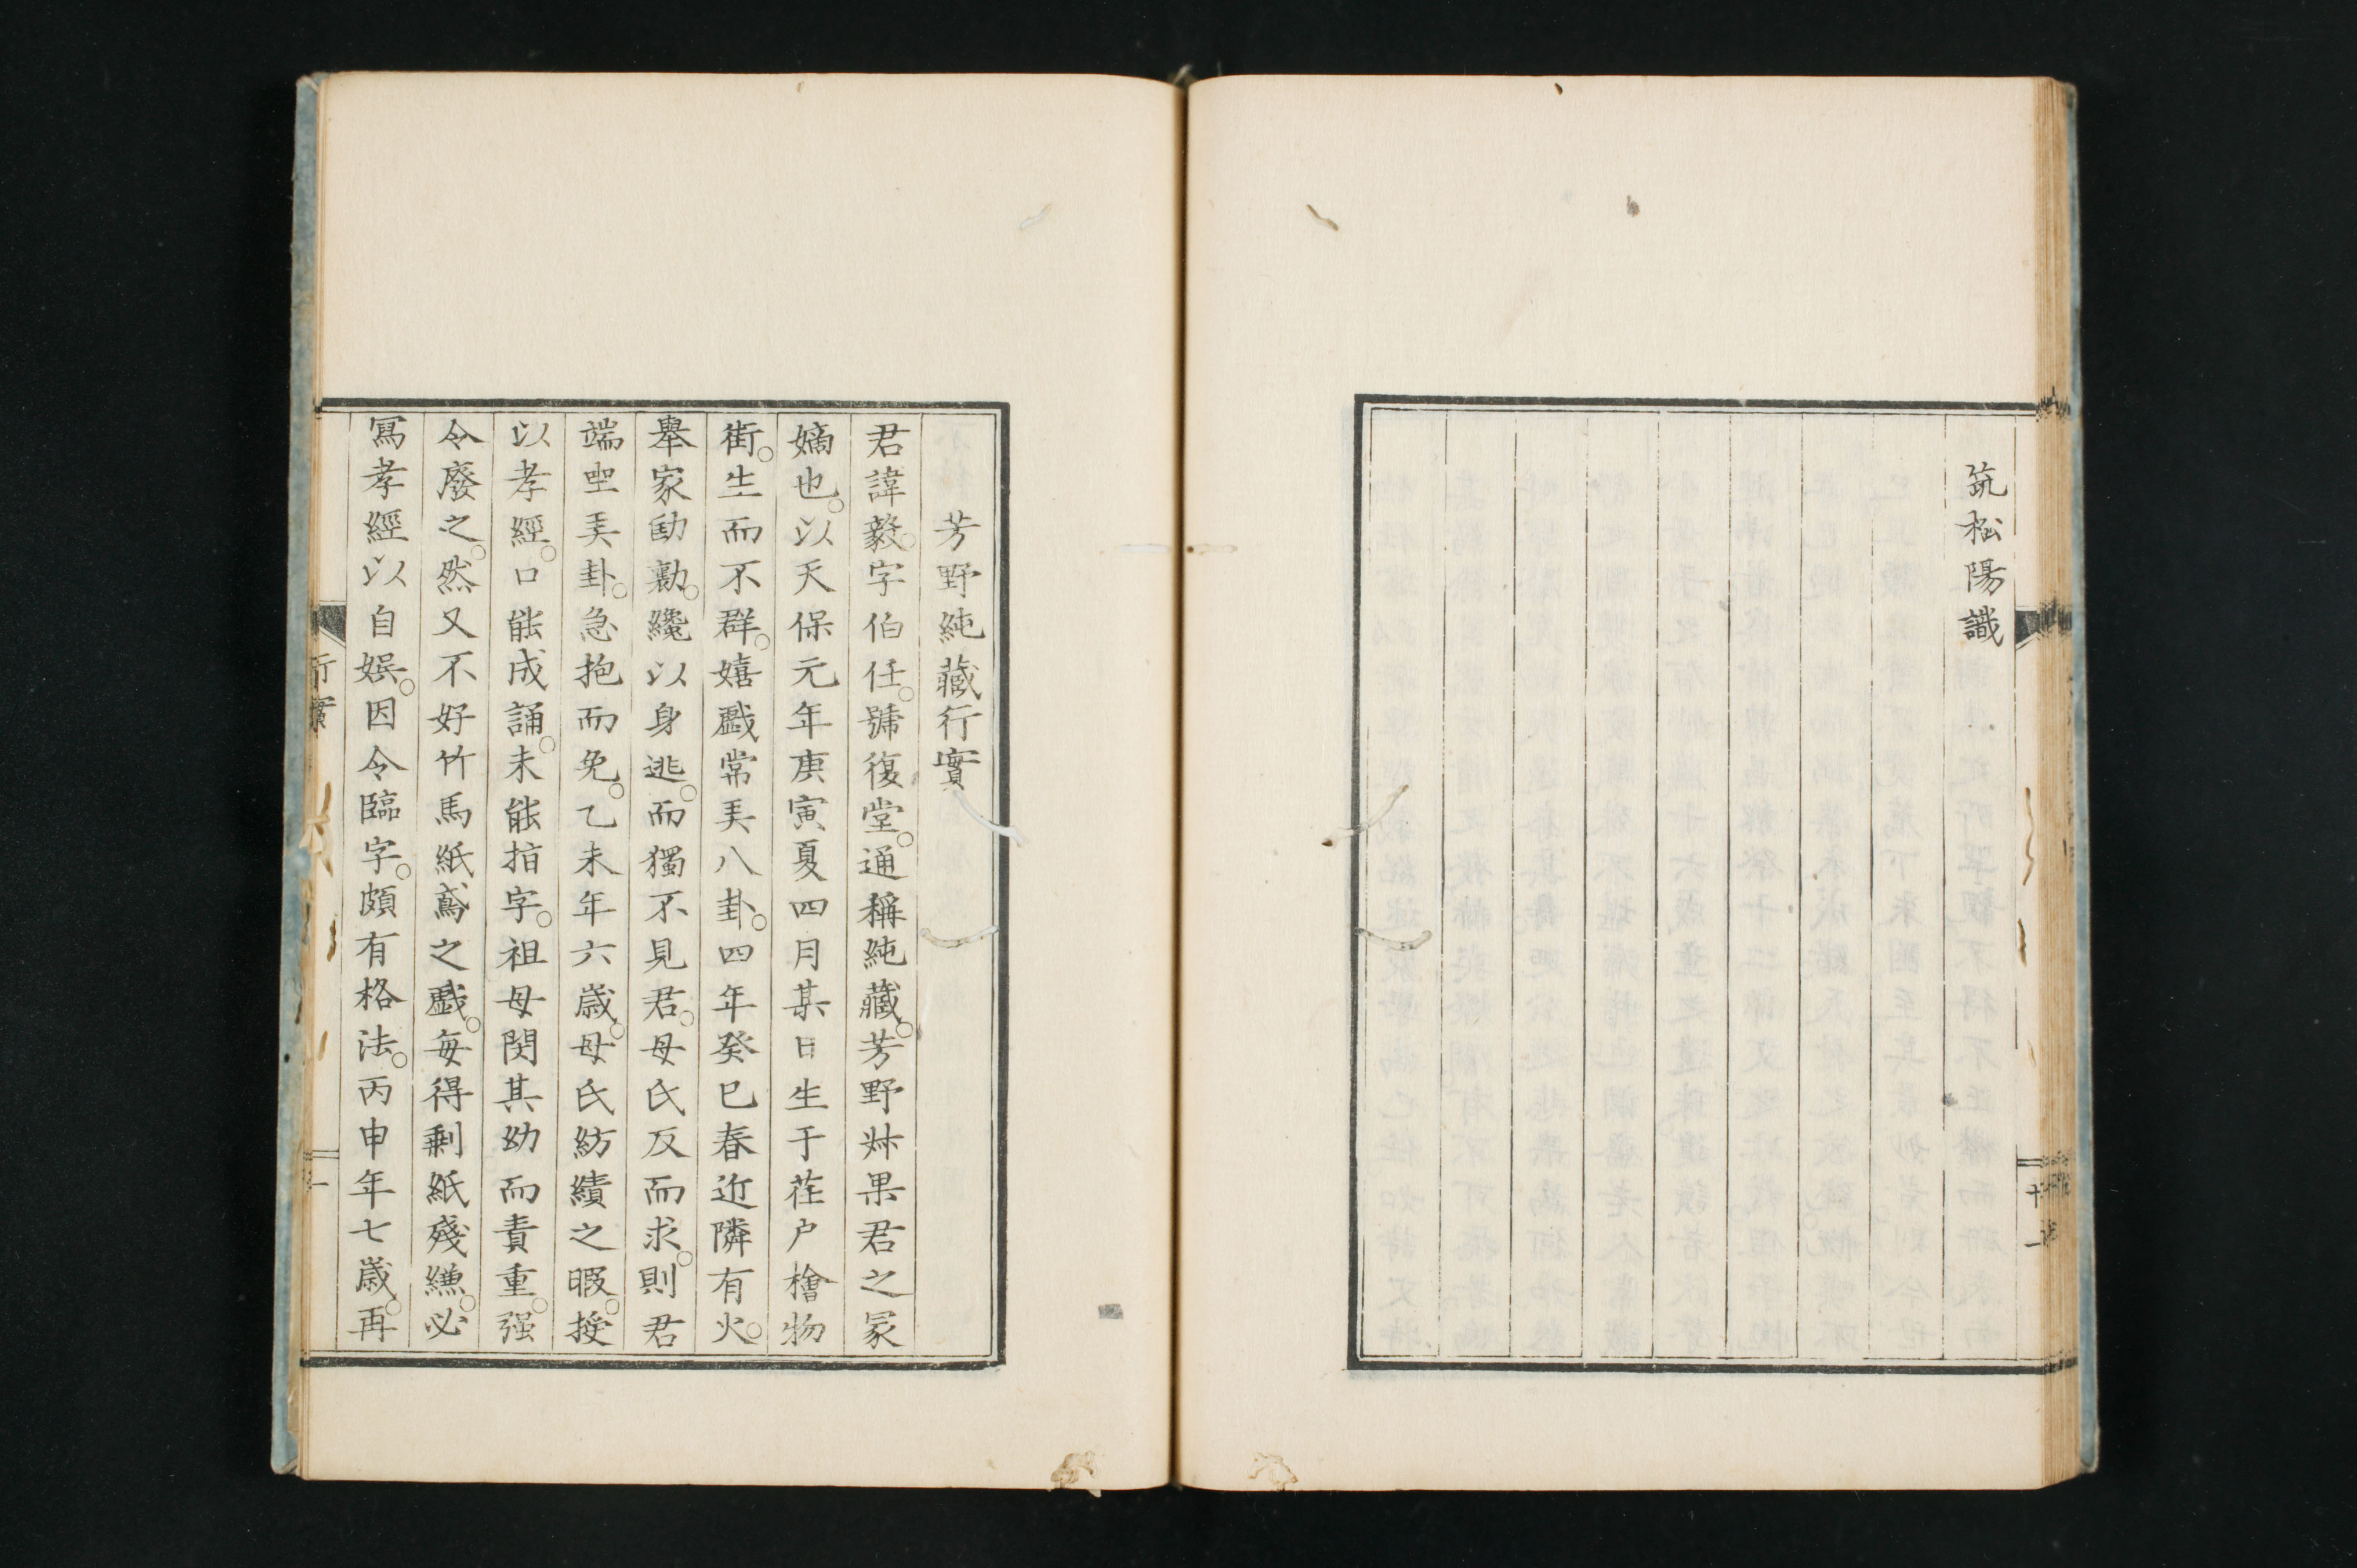 筑松陽識
十一
芳野純藏行實
君諱毅字伯任。號復堂。通稱純藏。芳野叔果君之冢
嫡也。以天保元年庚寅夏四月某日生于荏戶檜物
街。生而不群。嬉戲常弄八卦。四年癸巳春近隣有火。
舉家劻勷。纔以身逃。而獨不見君。母氏反而求。則君
端坐弄卦。急抱而免。乙未年六歲。母氏紡績之暇。授
以孝經。口能成誦。未能指字。祖母閔其幼而責重。强
令廢之。然又不好竹馬紙鳶之戲。每得剩紙殘縑。必
寫孝經以自娛。因令臨字。頗有格法。丙申年七歲。再
行實